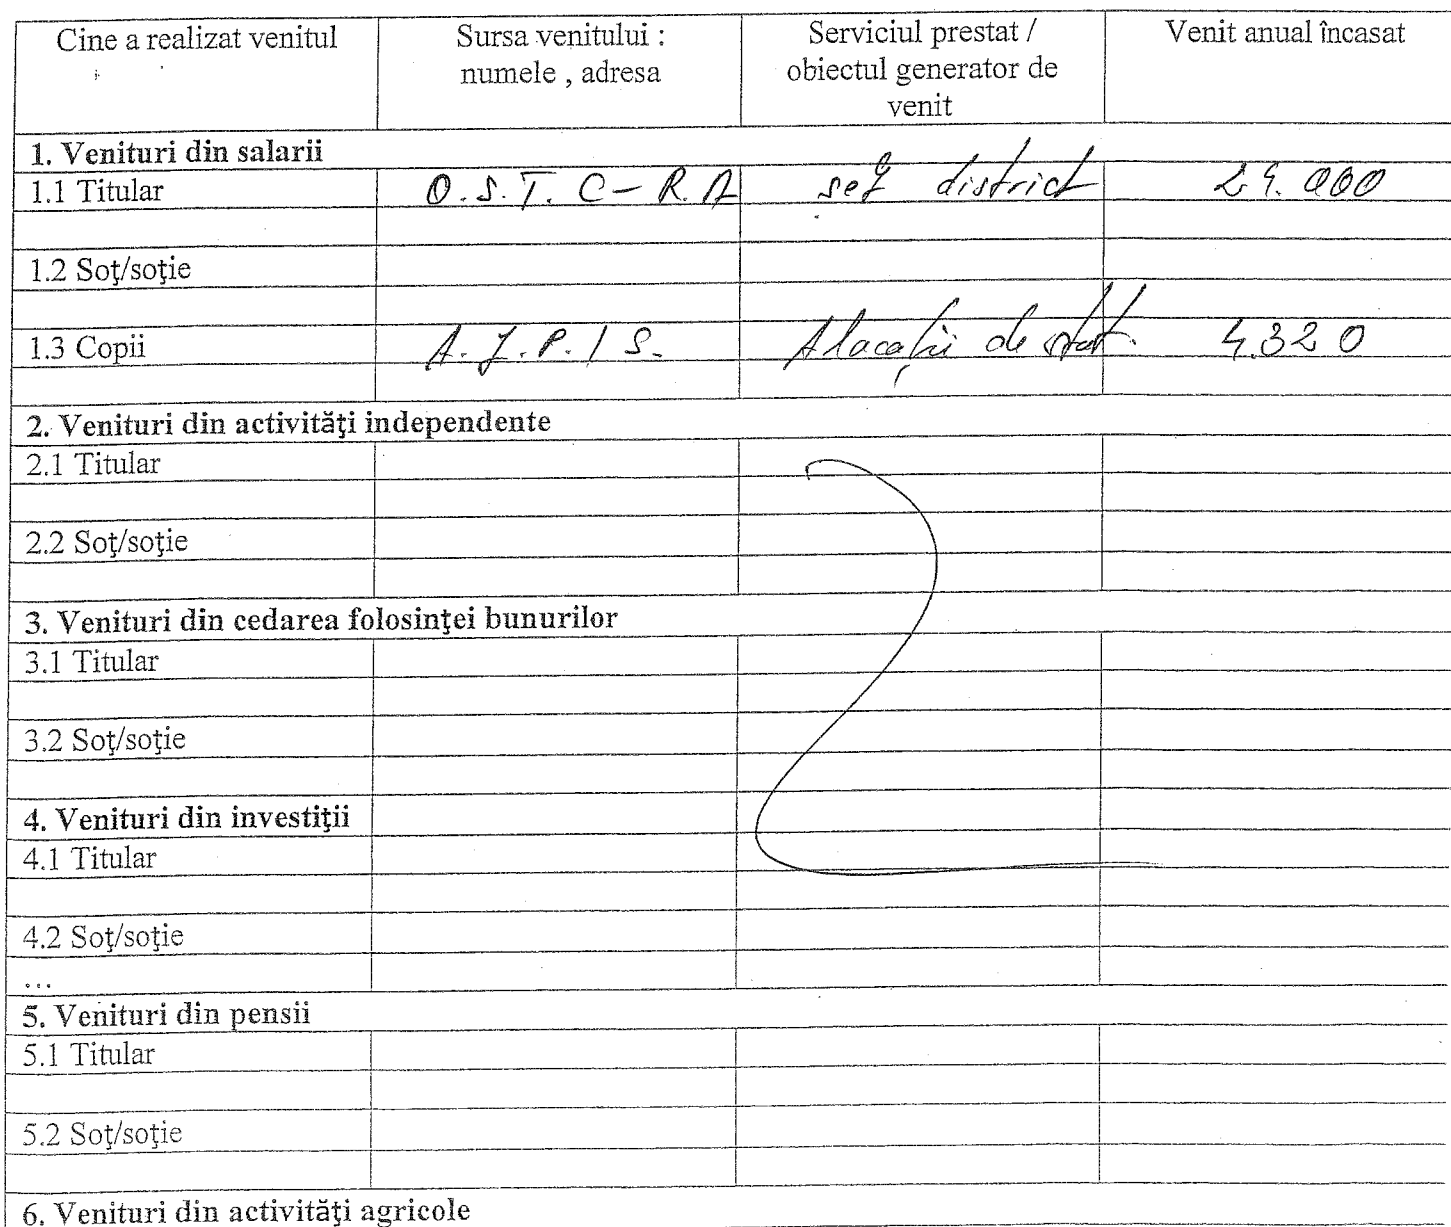 Cine a realizat venitul
Sursa venitului :
numele , adresa
Serviciul prestat /
obiectul generator de
venit
Venit anual încasat
1. Venituri din salarii
1.1 Titular
O.S.T.C-R.A
șef district
1.2 Soţ/soţie
1.3 Copii
A.J.P.I S.
Alocații de stat
4.320
2. Venituri din activităţi independente
2.1 Titular
2.2 Soţ/soţie
3. Venituri din cedarea folosinţei bunurilor
3.1 Titular
3.2 Soţ/soţie
4. Venituri din investiţii
4.1 Titular
4.2 Soţ/soţie
...
5. Venituri din pensii
5.1 Titular
5.2 Soţ/soţie
6. Venituri din activităţi agricole